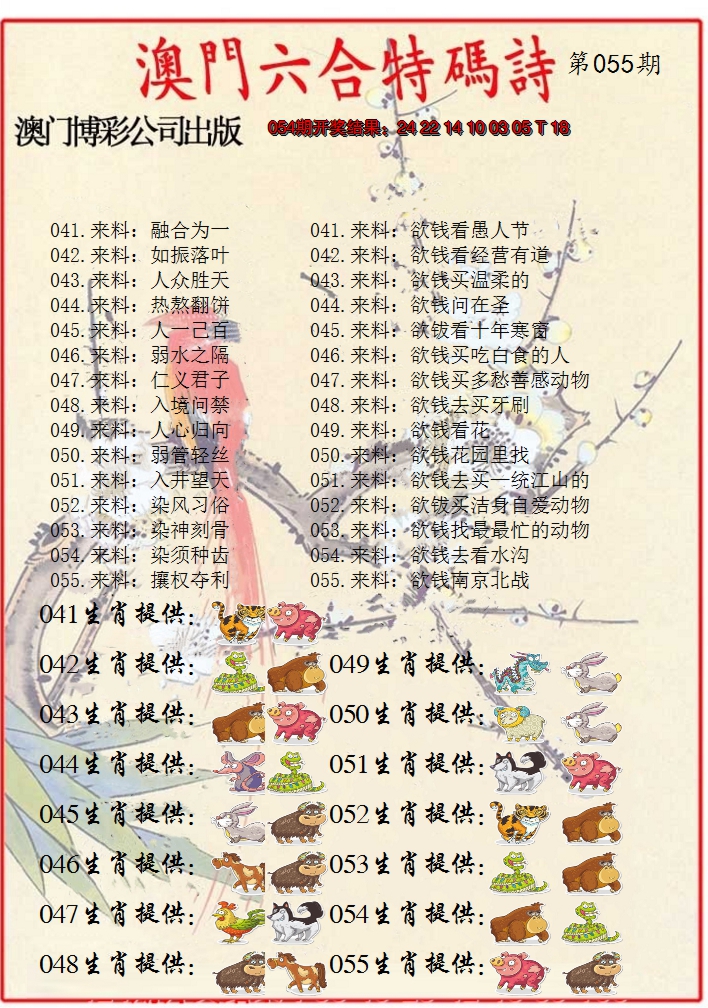 澳門六合特碼詩 第055期
澳门博彩公司出版 054期开奖结果：24 22 14 10 03 05 T 18
041.来料：融合为一 041.来料：欲钱看愚人节
042.来料：如振落叶 042.来料：欲钱看经营有道
043.来料：人众胜天 043.来料：欲钱买温柔的
044.来料：热熬翻饼 044.来料：欲钱问在圣
045.来料：人一己百 045.来料：欲钹看十年寒窗
046.来料：弱水之隔 046.来料：欲钱买吃白食的人
047.来料：仁义君子 047.来料：欲钱买多愁善感动物
048.来料：入境问禁 048.来料：欲钱去买牙刷
049.来料：人心归向 049.来料：欲钱看花
050.来料：弱管轻丝 050.来料：欲钱花园里找
051.来料：入井望天 051.来料：欲钱去买一统江山的
052.来料：染风习俗 052.来料：欲钹买洁身自爱动物
053.来料：染神刻骨 053.来料：欲钱找最最忙的动物
054.来料：染须种齿 054.来料：欲钱去看水沟
055.来料：攘权夺利 055.来料：欲钱南京北战
041生肖提供：
042生肖提供： 049生肖提供：
043生肖提供： 050生肖提供：
044生肖提供： 051生肖提供：
045生肖提供： 052生肖提供：
046生肖提供： 053生肖提供：
047生肖提供： 054生肖提供：
048生肖提供： 055生肖提供：